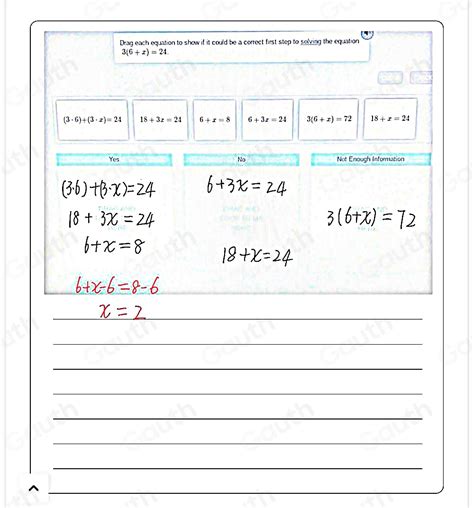 Drag each equation to show if it could be a correct first step to solving the equation
3(6 + x) = 24.
(3 · 6)+(3 · x)= 24
18 + 3x = 24
6 + x = 8
6 + 3x = 24
3(6 + x) = 72
18 + x = 24
Yes
No
Not Enough Information
(3·6)+(3·x)=24
6+3x=24
18 + 3x=24
3(6+x)=72
6+x=8
18+x=24
6+x-6=8-6
x=2
Gauth